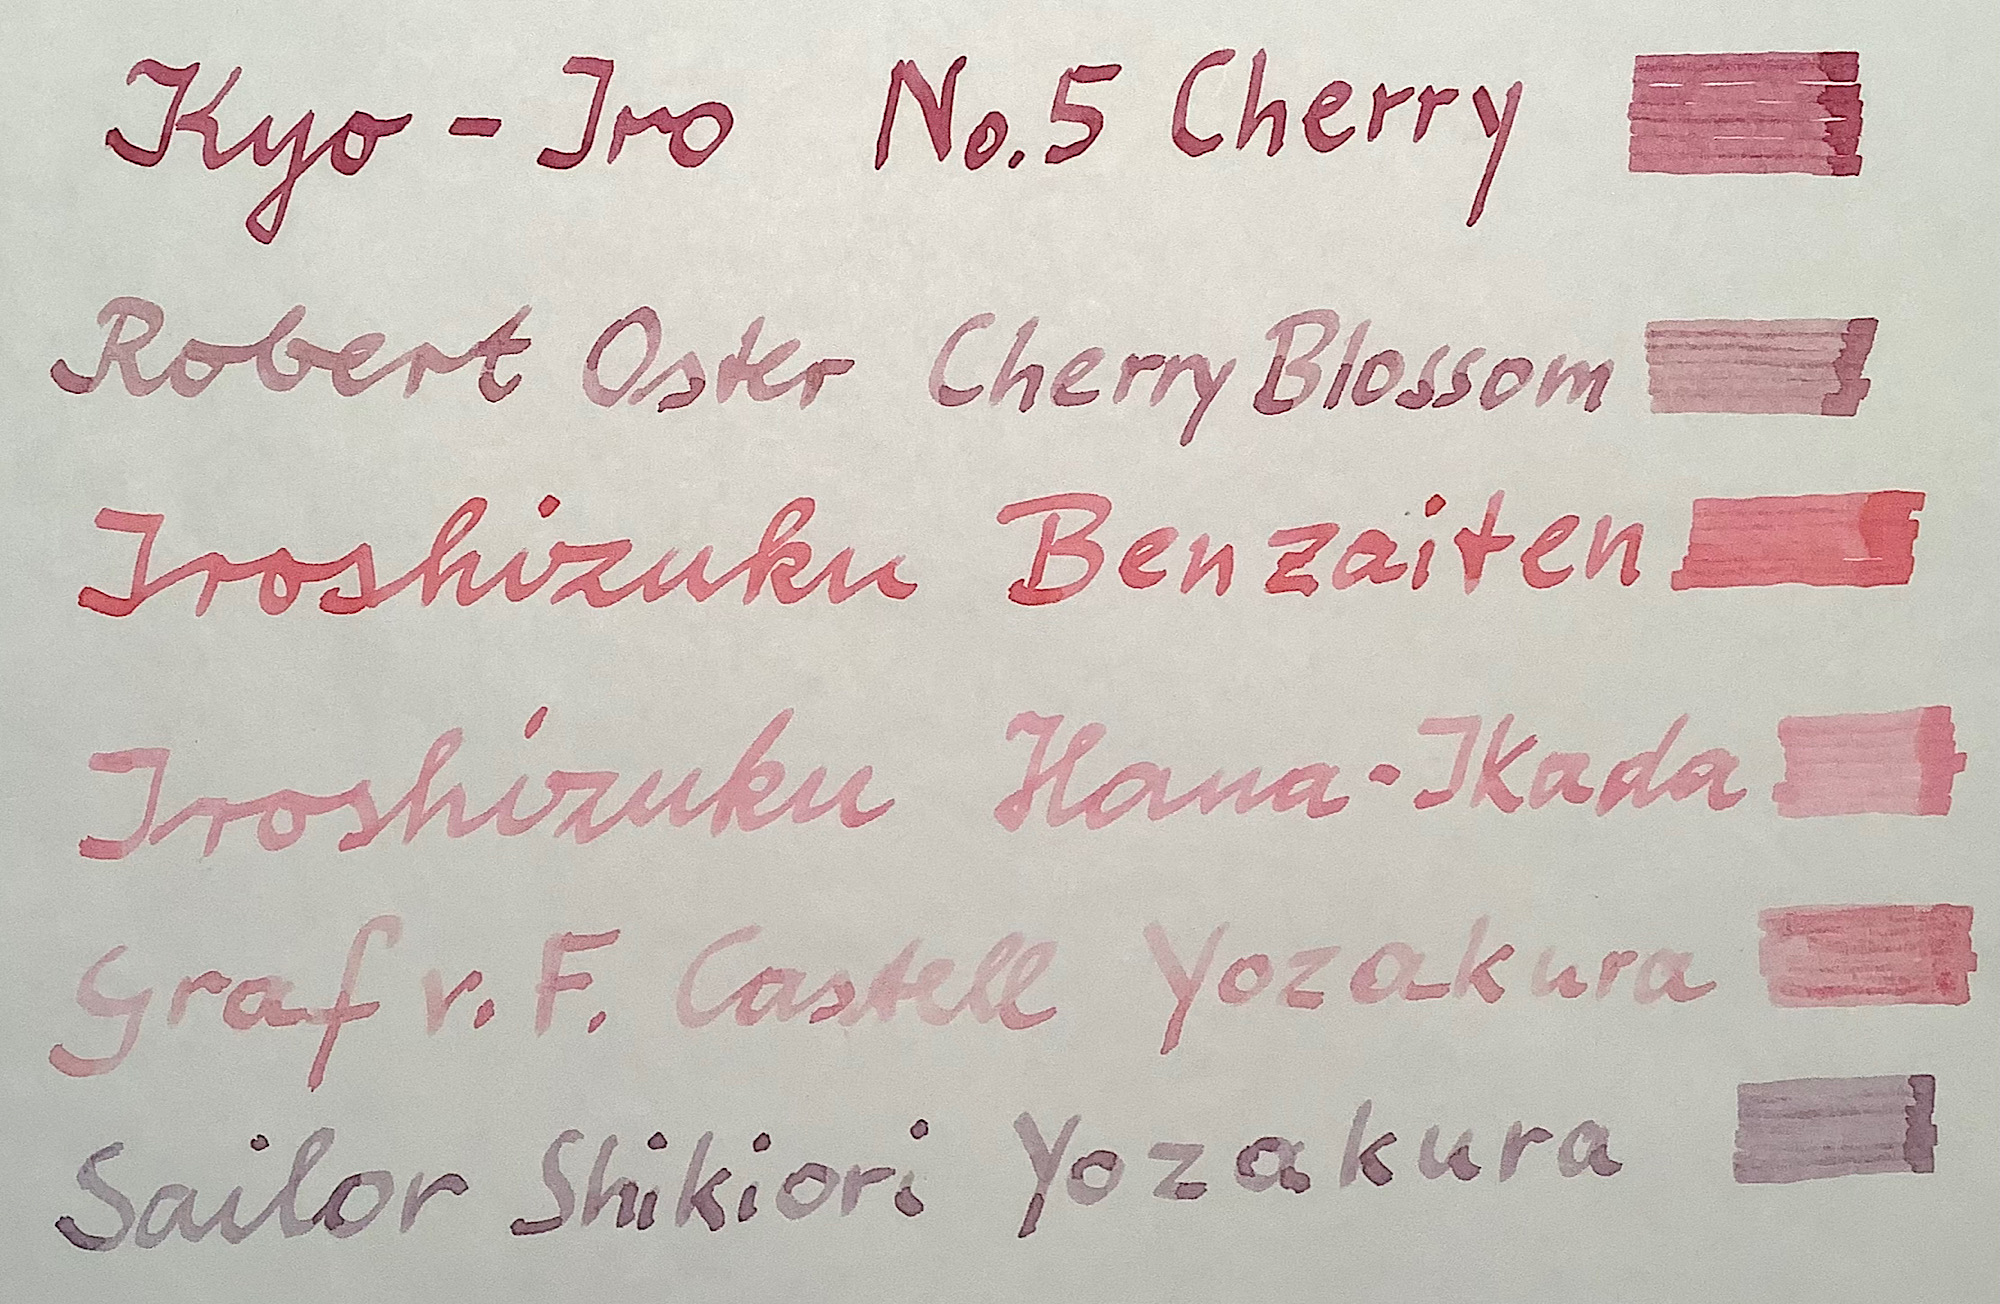 Kyo - Iro No.5 Cherry
Robert Oster Cherry Blossom
Iroshizuku Benzaiten
Iroshizuku Hana-Ikada
Graf v. F. Castell Yozakura
Sailor Shikiori Yozakura